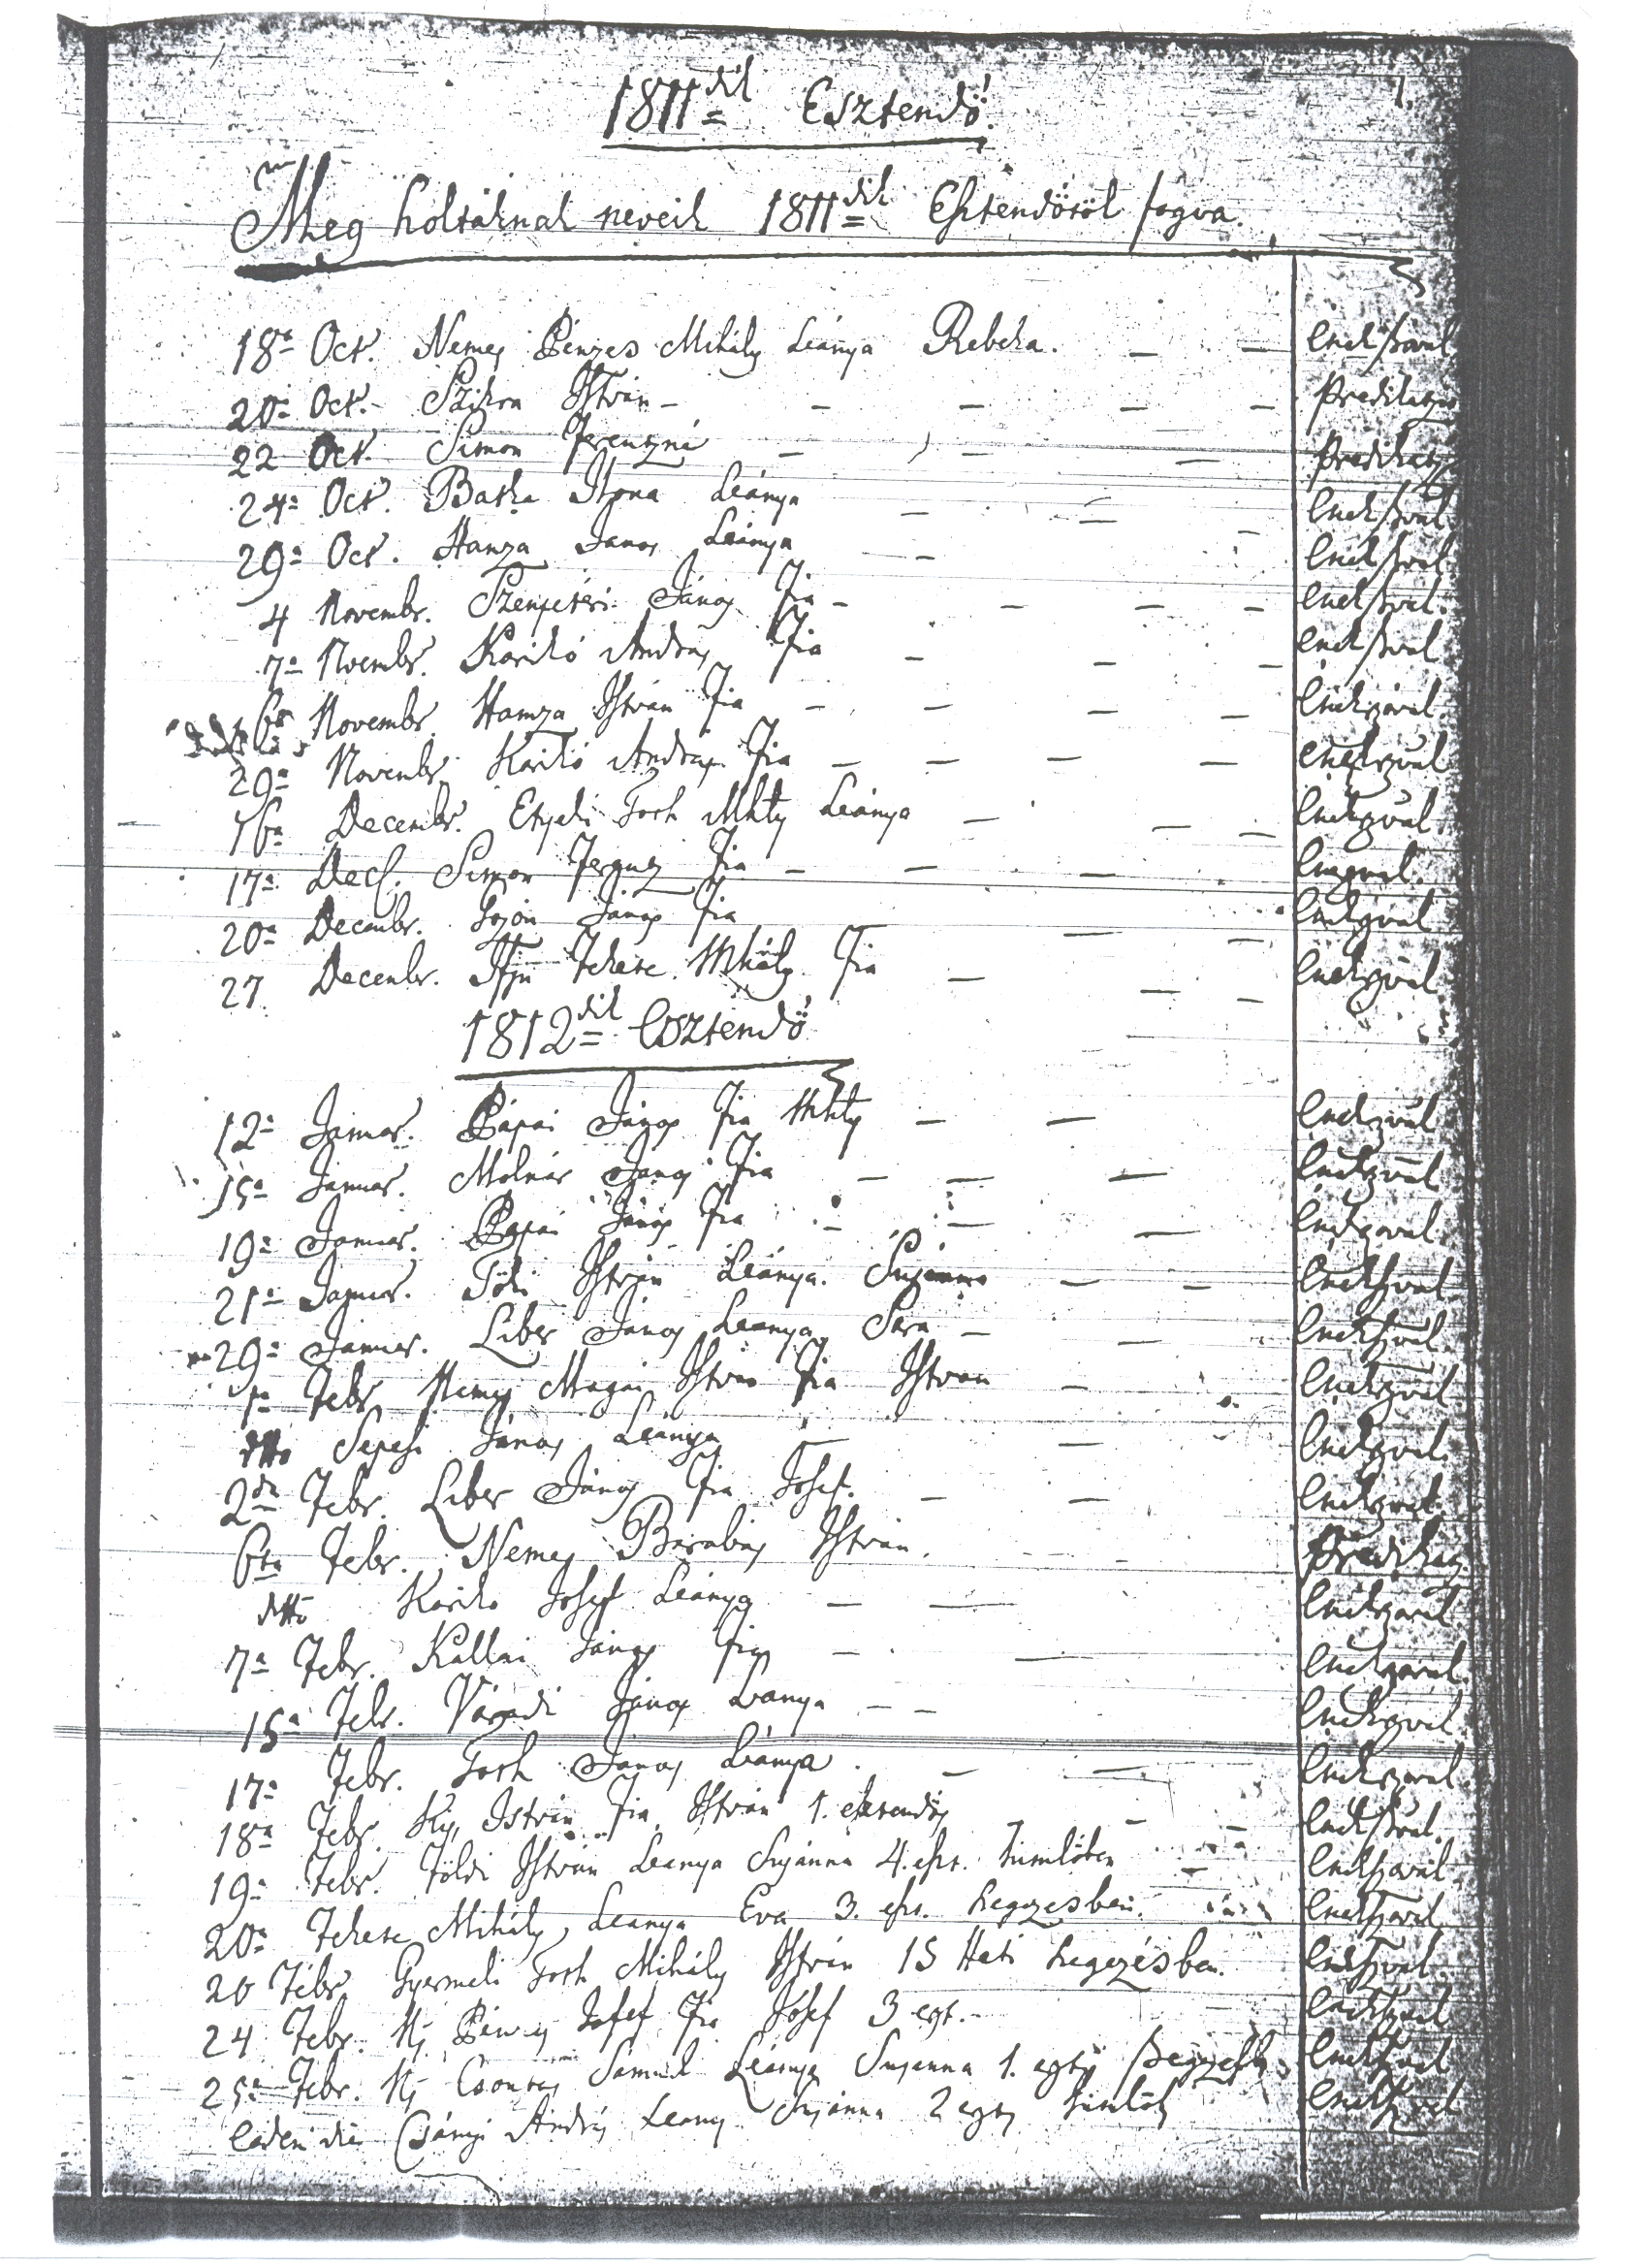 1.
1811dik Esztendő
Meg holtaknak neveik 1811dik Esztendőtöl fogva.
18a Oct. Nemes Pénzes Mihály Leánya Rebeka. — — Enekszóval
20a Oct. Szikra István — — — — — Predikatzio
22 Oct. Simon Ferentzné — — — Predikatzio
24a Oct. Batka Ilona Leánya — — Enekszóval
29a Oct. Hamza Janos Leánya — — Enekszóval
4 Novembr. Szenpeteri János Fia — — — — Enekszóval
7a Novembr. Karikó András Fia — — — Enekszóval
Novembr. Hamza István Fia — — — — Enekszóval
29a Novembr. Karikó András Fia — — — — Enekszóval
16a Decembr. Etyeki Toth Mihály Leánya — — — Enekszóval
17a Dec. Simon Ferentz Fia — — — Enekszóval
20a Decembr. János Fia — — Enekszóval
27 Decembr. Ifjú Fekete Mihály Fia — — — Enekszóval
1812dik Esztendő
12a Januar. Pápai János Fia Mihály — — Enekszóval
15a Januar. Molnár Janos Fia — — — Enekszóval
19a Januar. Papai János Fia — — — Enekszóval
21a Januar. István Leánya Susánna — — Enekszóval
29a Januar. Liber János Leanya Sára — — Enekszóval
1a Febr. Nemes Magai István Fia István — Enekszóval
ditto Sepesi János Leánya — — Enekszóval
2da Febr. Liber János Fia Josef. — — Enekszóval
6ta Febr. Nemes Barabas István. — — Predikatz.
ditto Kariko Josef Leánya — — Enekszóval
7a Febr. Kallai János Fia — — Enekszóval
15a Febr. Váradi János Leanya — — Enekszóval
17a Febr. Toth Janos Leánya — — Enekszóval
18a Febr. Kis István Fia István 1. esztendős — — Enekszóval
19a Febr. Földi István Leanya Susánna 4. esz. himlőben — Enekszóval
20a Fekete Mihály Leanya Eva 3. esz. hegyzesben. Enekszóval
20 Febr. Gyermeli Toth Mihály István 15 Heti hegyzésben. Enekszóval
24 Febr. Ns Pénzes Josef Fia Josef 3 Enekszóval
25a Febr. Ns Csontos Samuel Leánya Susanna 1. Enekszóval
Eadem die Csányi András Leany Susánna 2 Enekszóval